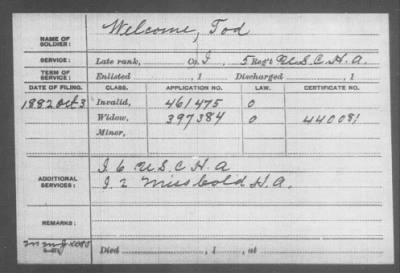 Welcome, Tod
NAME OF SOLDIER:
SERVICE: Late rank, Co. I, 5 Reg't U.S.C.H.A.
TERM OF SERVICE: Enlisted , 1 Discharged , 1
DATE OF FILING. CLASS. APPLICATION NO. LAW. CERTIFICATE NO.
1882 Oct 3 Invalid, 461475 0
Widow, 397384 0 440081
Minor,
ADDITIONAL SERVICES: I 6 U.S.C.H.A
I 2 Miss Cold H.A.
REMARKS:
Died , 1 , at